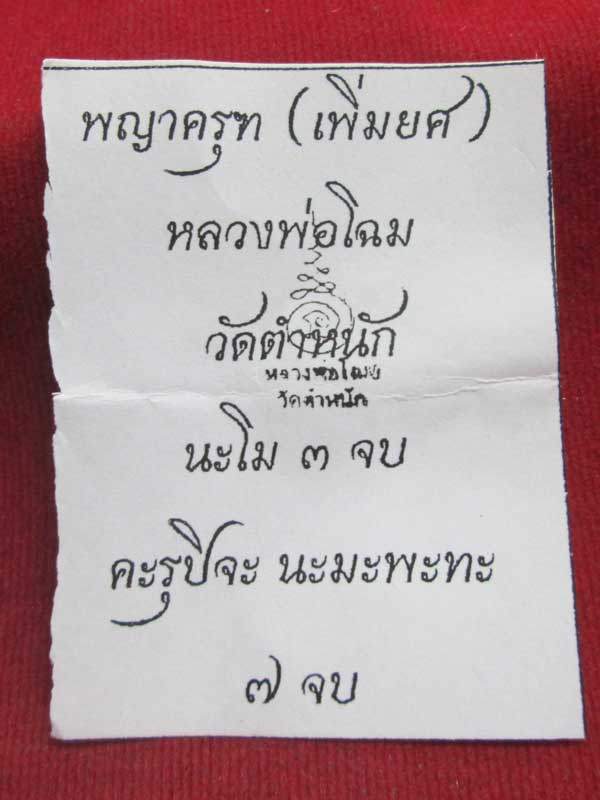 พญาครุฑ (เพิ่มยศ)
หลวงพ่อโฉม
วัดตำหนัก
หลวงพ่อโฉม
วัดตำหนัก
นะโม ๓ จบ
คะรุปิจะ นะมะพะทะ
๗ จบ